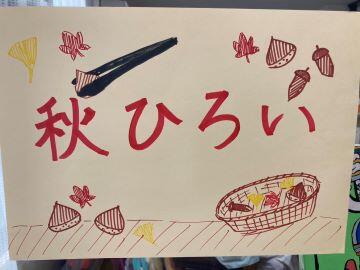 秋ひろい